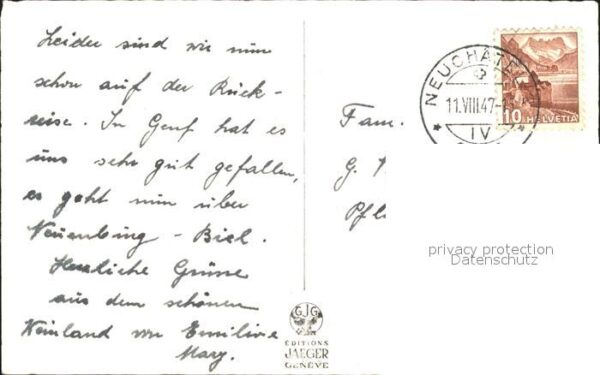 Leider sind wir nun
schon auf der Rück-
reise. In Genf hat es
uns sehr gut gefallen,
es geht nun über
Neuenburg - Biel.
Herzliche Grüsse
aus dem schönen
Weinland von Emilie
Mary.
Fam.
G.
NEUCHÂTEL
11.VIII.47
IV
10 HELVETIA
privacy protection
Datenschutz
GJG
EDITIONS
JAEGER
GENÈVE